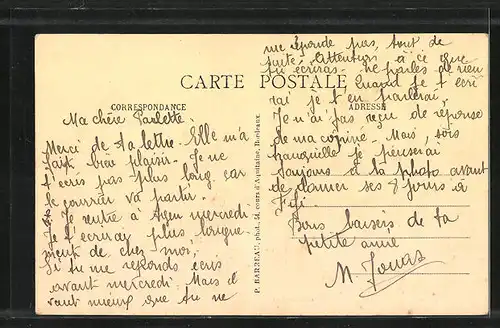 CARTE POSTALE
CORRESPONDANCE
Ma chère Paulette.
Merci de ta lettre. Elle m'a
fait bien plaisir. Je ne
t'écris pas plus long car
le courrier va partir.
Je rentre à Agen mercredi
Je t'écrirai plus longue-
ment de chez moi,
Si tu me réponds écris
avant mercredi. Mais il
vaut mieux que tu ne
P. BARREAU, phot. 54, cours d'Aquitaine, Bordeaux
me réponde pas, tout de
suite. Attention à ce que
tu écriras. ne parles de rien
Quand je t'écri
ADRESSE
rai je t'en parlerai,
Je n'ai pas reçu de réponse
de ma copine. Mais, sois
tranquille je penserai
toujours à la photo avant
de donner ses 8 jours à
Fifi.
Bons baisers de ta
petite amie
M. Jouas